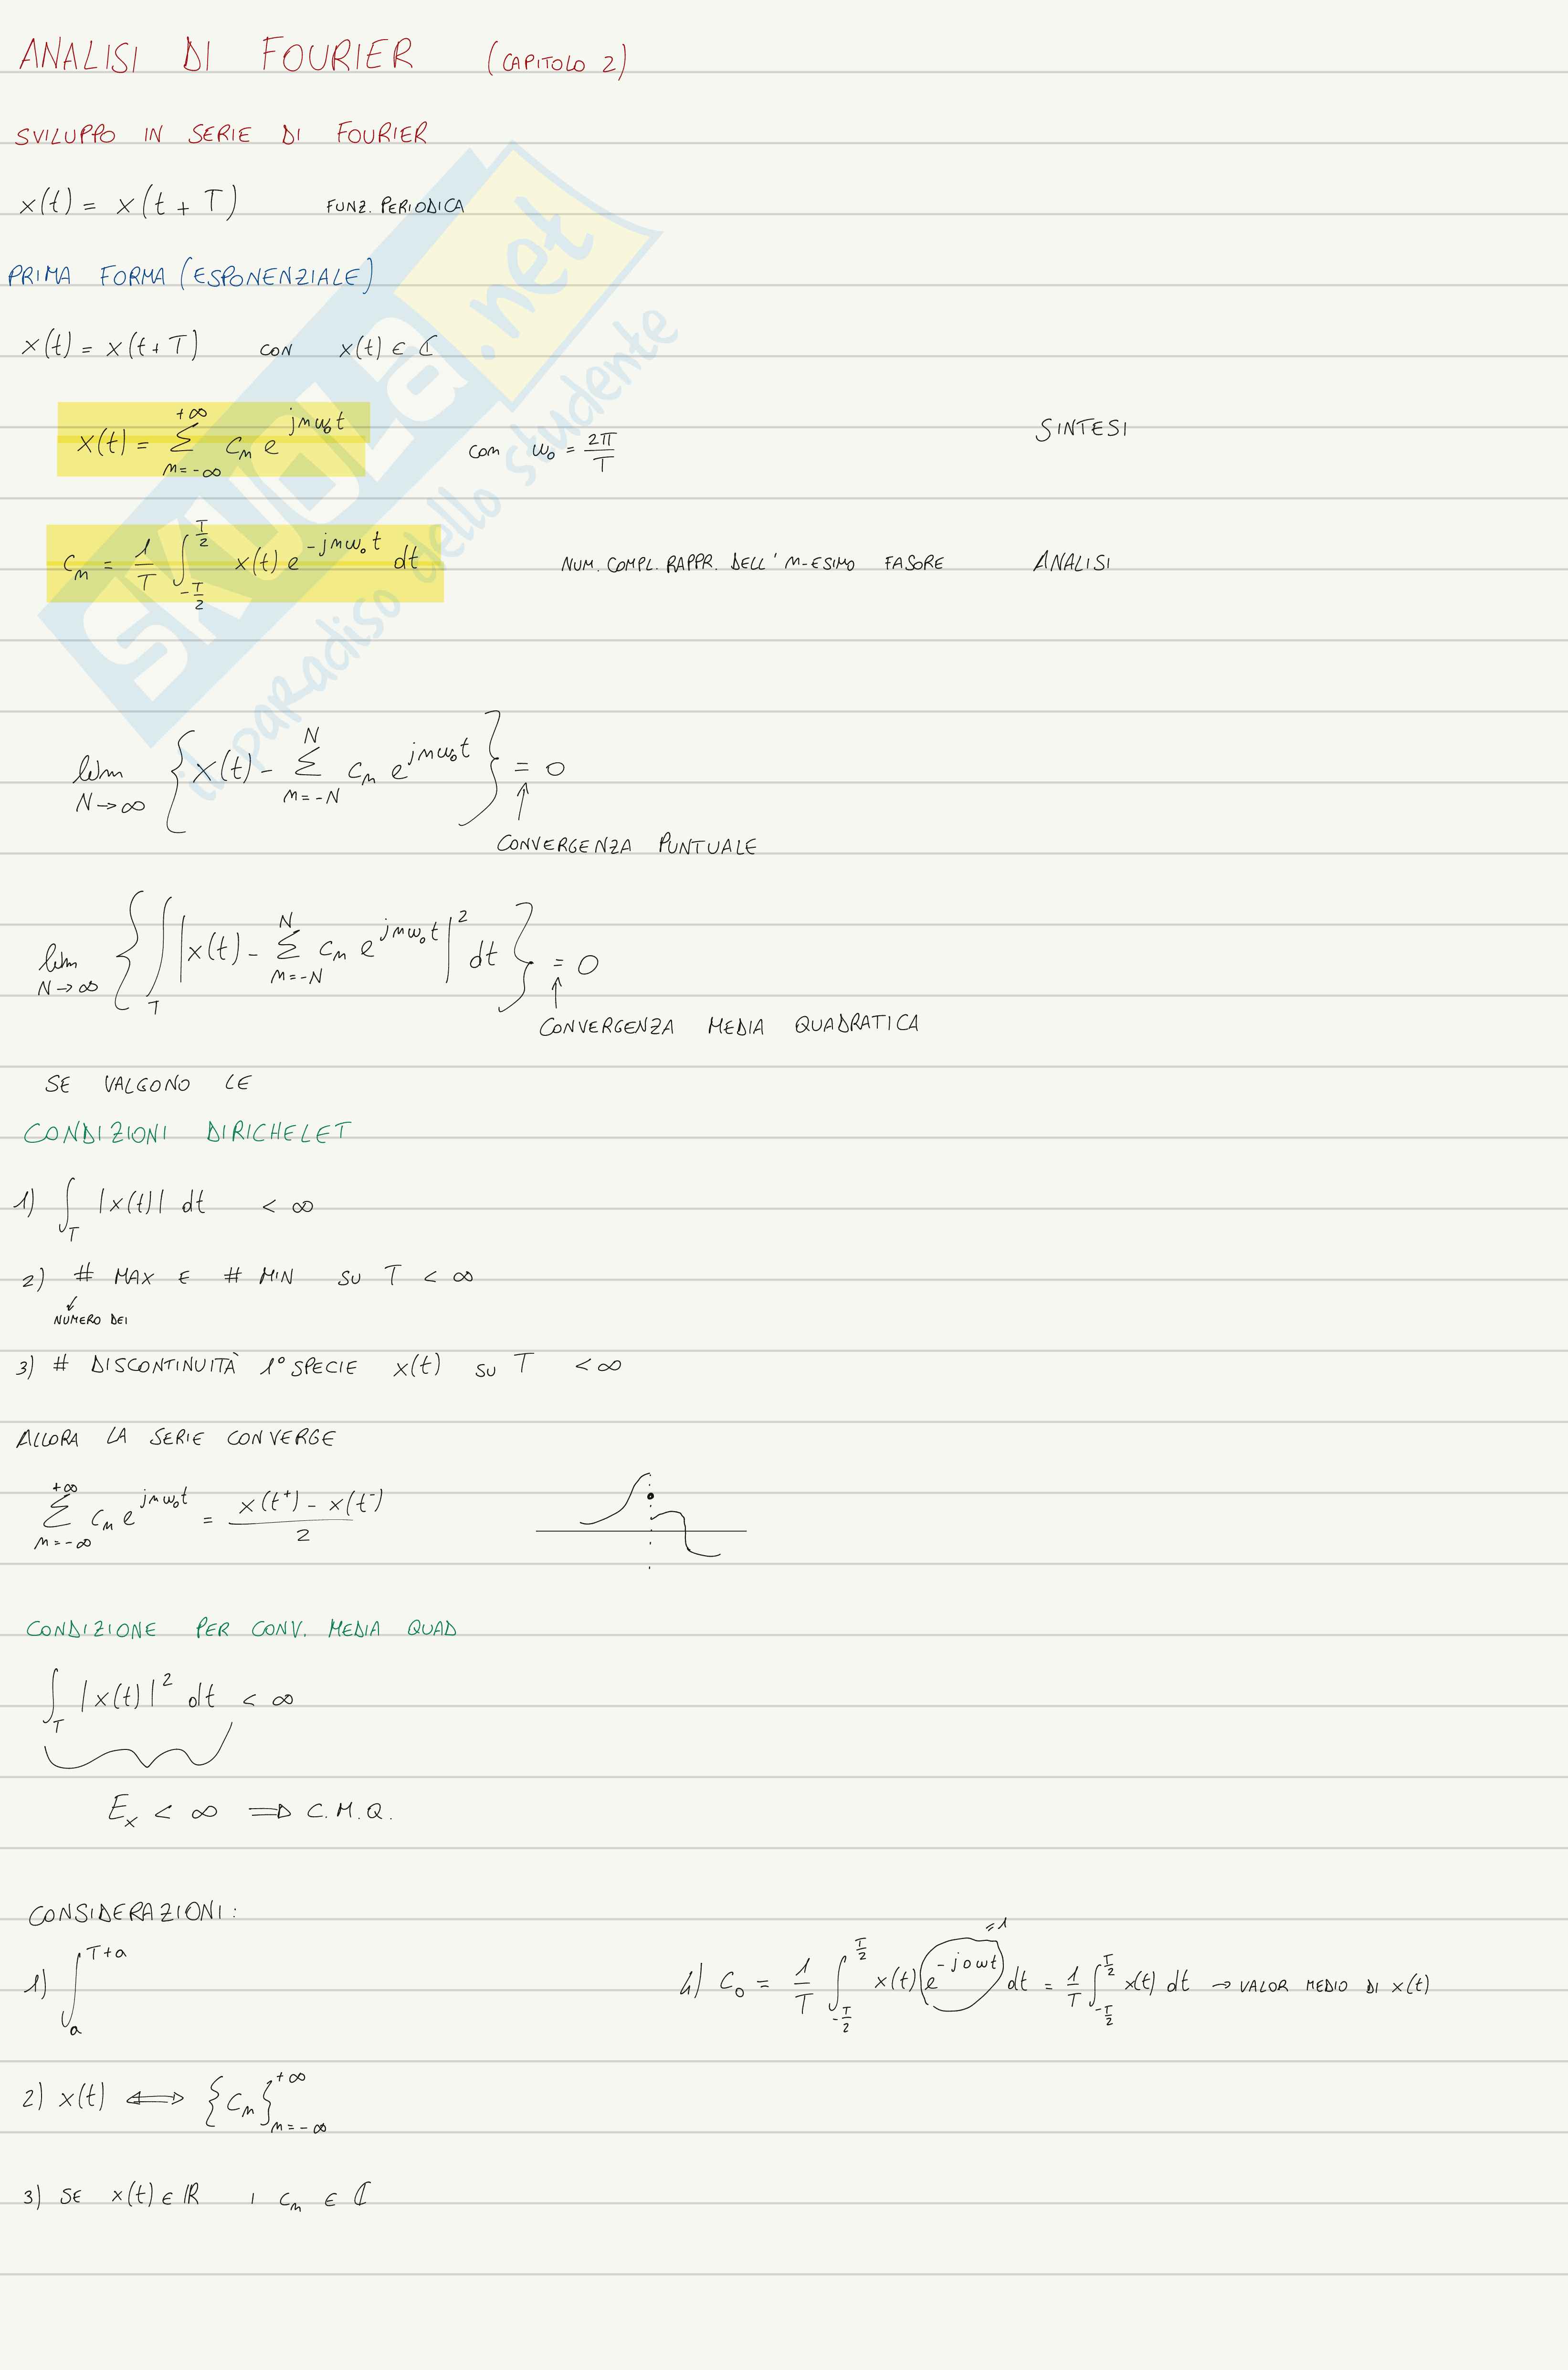 ANALISI DI FOURIER (CAPITOLO 2)
SVILUPPO IN SERIE DI FOURIER
x(t) = x(t + T) FUNZ. PERIODICA
PRIMA FORMA (ESPONENZIALE)
x(t) = x(t+T) CON x(t) ∈ ℂ
x(t) = Σ_{n=-∞}^{+∞} c_n e^{jnω₀t} con ω₀ = 2π/T SINTESI
c_n = 1/T ∫_{-T/2}^{T/2} x(t) e^{-jnω₀t} dt NUM. COMPL. RAPPR. DELL' N-ESIMO FASORE ANALISI
lim_{N→∞} { x(t) - Σ_{n=-N}^{N} c_n e^{jnω₀t} } = 0
↑
CONVERGENZA PUNTUALE
lim_{N→∞} { ∫_T | x(t) - Σ_{n=-N}^{N} c_n e^{jnω₀t} |² dt } = 0
↑
CONVERGENZA MEDIA QUADRATICA
SE VALGONO LE
CONDIZIONI DIRICHELET
1) ∫_T |x(t)| dt < ∞
2) # MAX E # MIN SU T < ∞
NUMERO DEI
3) # DISCONTINUITÀ 1° SPECIE x(t) SU T < ∞
ALLORA LA SERIE CONVERGE
Σ_{n=-∞}^{+∞} c_n e^{jnω₀t} = (x(t⁺) - x(t⁻))/2
CONDIZIONE PER CONV. MEDIA QUAD
∫_T |x(t)|² dt < ∞
E_x < ∞ ⇒ C.M.Q.
CONSIDERAZIONI:
1) ∫_a^{T+a}
2) x(t) ⟺ {c_n}_{n=-∞}^{+∞}
3) SE x(t) ∈ ℝ , c_n ∈ ℂ
4) c_0 = 1/T ∫_{-T/2}^{T/2} x(t) e^{-j0ωt} dt = 1/T ∫_{-T/2}^{T/2} x(t) dt → VALOR MEDIO DI x(t)
=1
SKUOLA.net
il paradiso dello studente